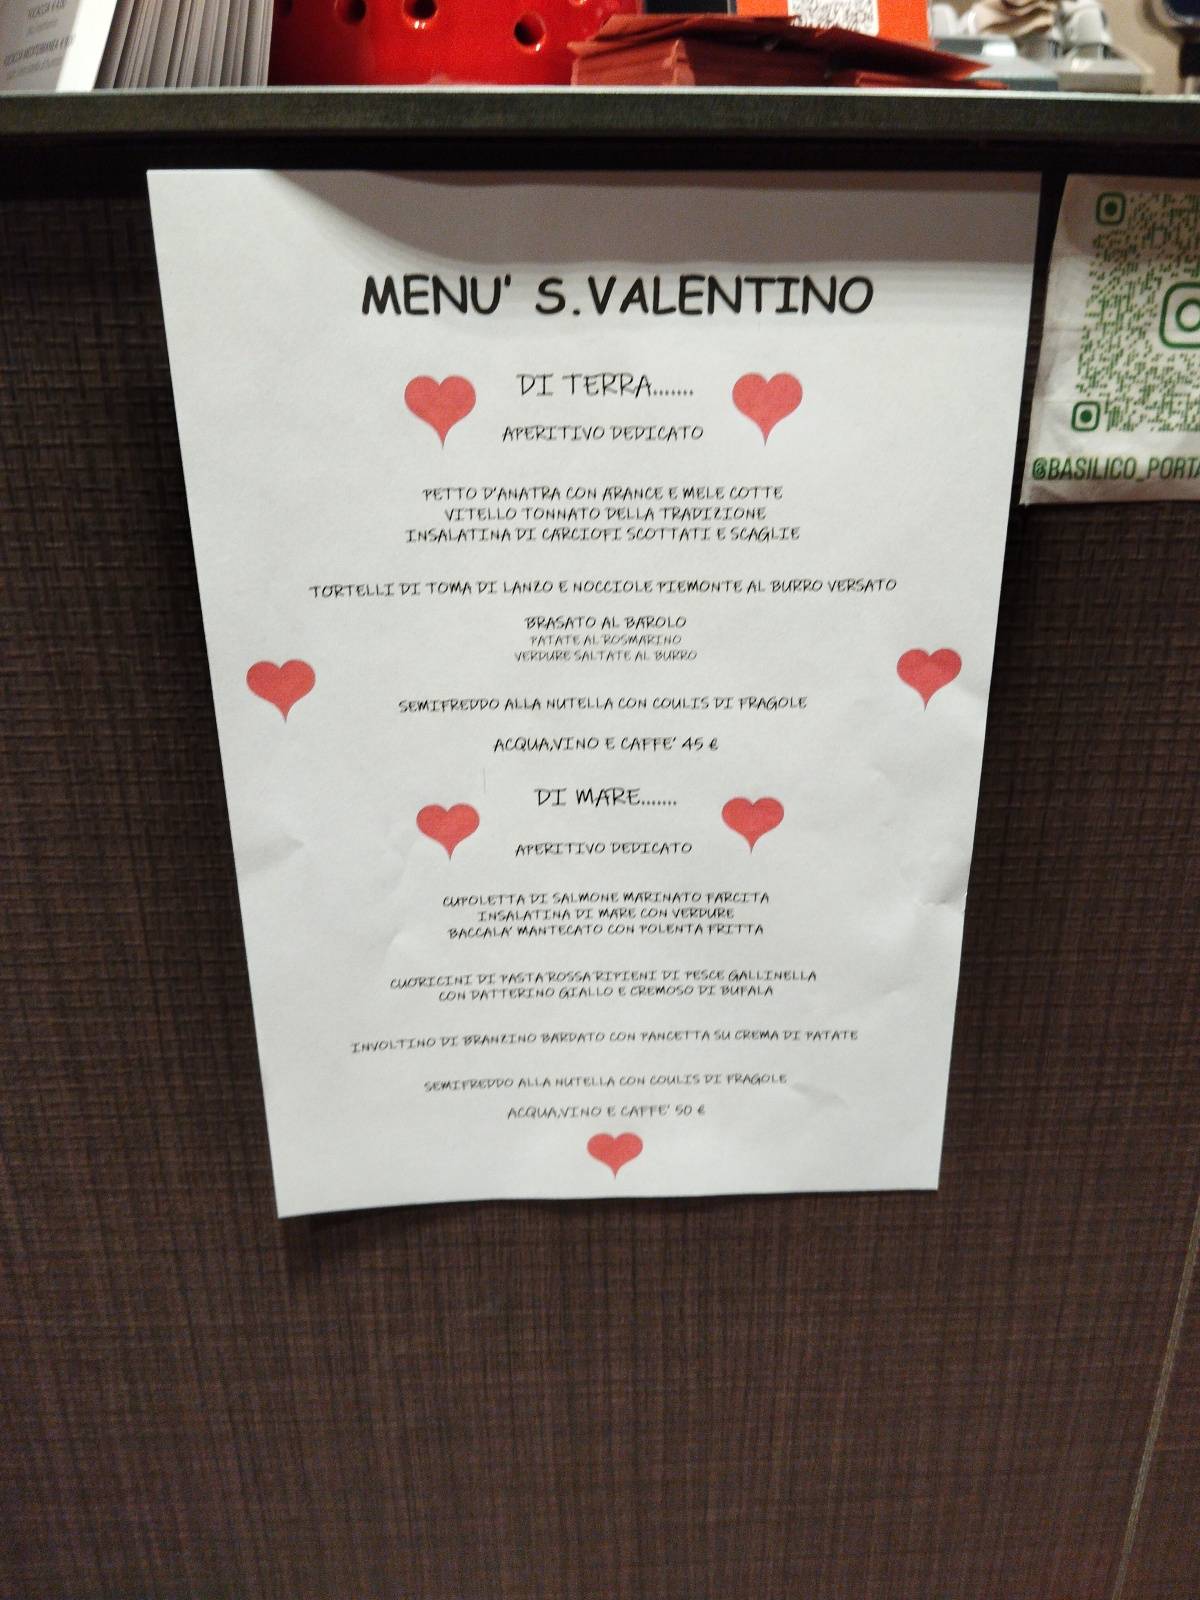 MENU' S.VALENTINO
DI TERRA.......
APERITIVO DEDICATO
PETTO D'ANATRA CON ARANCE E MELE COTTE
VITELLO TONNATO DELLA TRADIZIONE
INSALATINA DI CARCIOFI SCOTTATI E SCAGLIE
TORTELLI DI TOMA DI LANZO E NOCCIOLE PIEMONTE AL BURRO VERSATO
BRASATO AL BAROLO
PATATE AL ROSMARINO
VERDURE SALTATE AL BURRO
SEMIFREDDO ALLA NUTELLA CON COULIS DI FRAGOLE
ACQUA,VINO E CAFFE' 45 €
DI MARE.......
APERITIVO DEDICATO
CUPOLETTA DI SALMONE MARINATO FARCITA
INSALATINA DI MARE CON VERDURE
BACCALA' MANTECATO CON POLENTA FRITTA
CUORICINI DI PASTA ROSSA RIPIENI DI PESCE GALLINELLA
CON DATTERINO GIALLO E CREMOSO DI BUFALA
INVOLTINO DI BRANZINO BARDATO CON PANCETTA SU CREMA DI PATATE
SEMIFREDDO ALLA NUTELLA CON COULIS DI FRAGOLE
ACQUA,VINO E CAFFE' 50 €
@BASILICO_PORTA